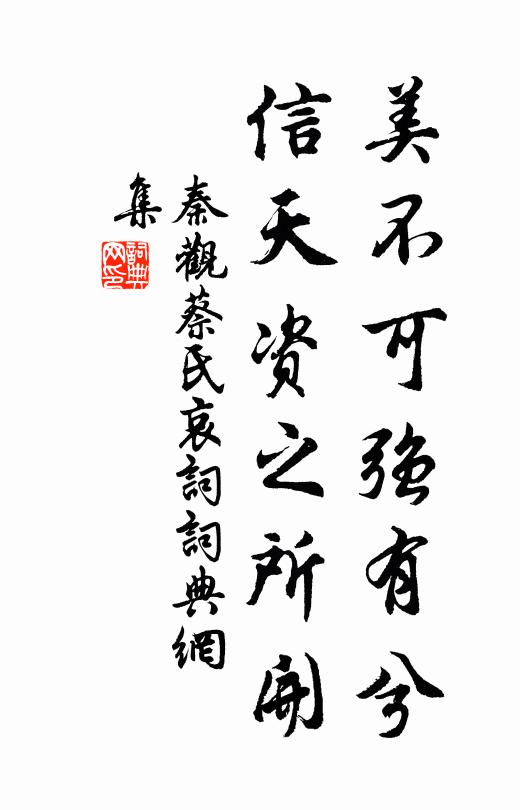 美不可强有兮
信天资之所開
秦觀蔡氏哀詞詞典網
集
詞典网印